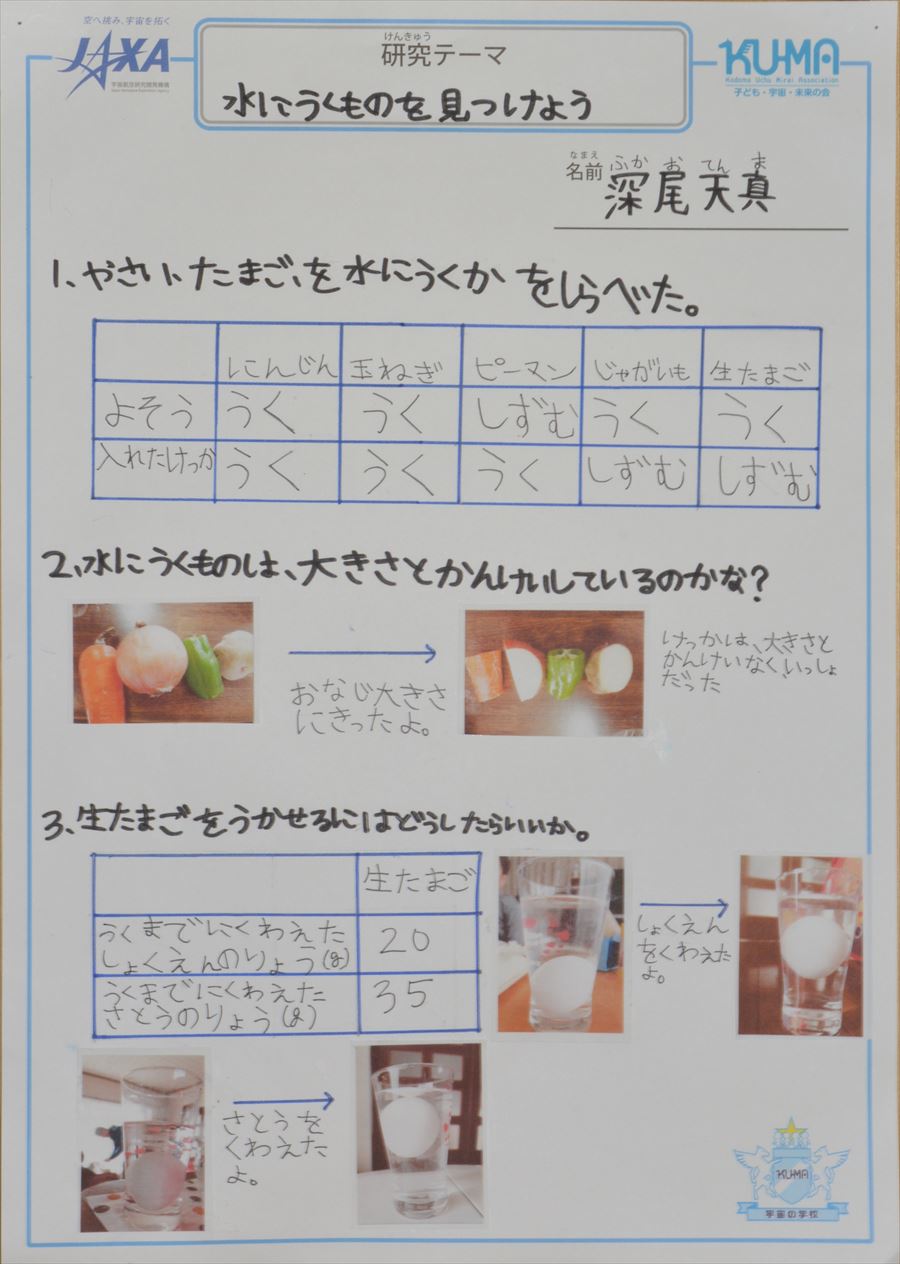 空へ挑み、宇宙を拓く
JAXA
宇宙航空研究開発機構
Japan Aerospace Exploration Agency
けんきゅう
研究テーマ
水にうくものを見つけよう
KU-MA
Kodomo Uchu Mirai Association
子ども・宇宙・未来の会
なまえ
名前
ふか お てん ま
深尾天真
1、やさい、たまご、を水にうくかをしらべた。
にんじん 玉ねぎ ピーマン じゃがいも 生たまご
よそう うく うく しずむ うく うく
入れたけっか うく うく うく しずむ しずむ
2、水にうくものは、大きさとかんけいしているのかな?
おなじ大きさ
にきったよ。
けっかは、大きさと
かんけいなく、いっしょ
だった
3、生たまごをうかせるにはどうしたらいいか。
生たまご
うくまでにくわえた
しょくえんのりょう(g)
20
うくまでにくわえた
さとうのりょう(g)
35
しょくえん
をくわえた
よ。
さとうを
くわえた
よ。
KU-MA
宇宙の学校